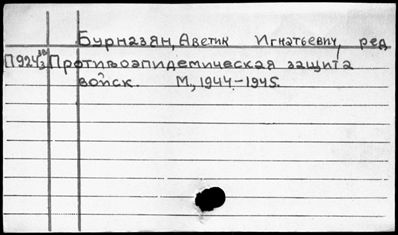 Бурназян, Аветик Игнатьевич, ред
Противоэпидемическая защита
войск. М, 1944-1945.